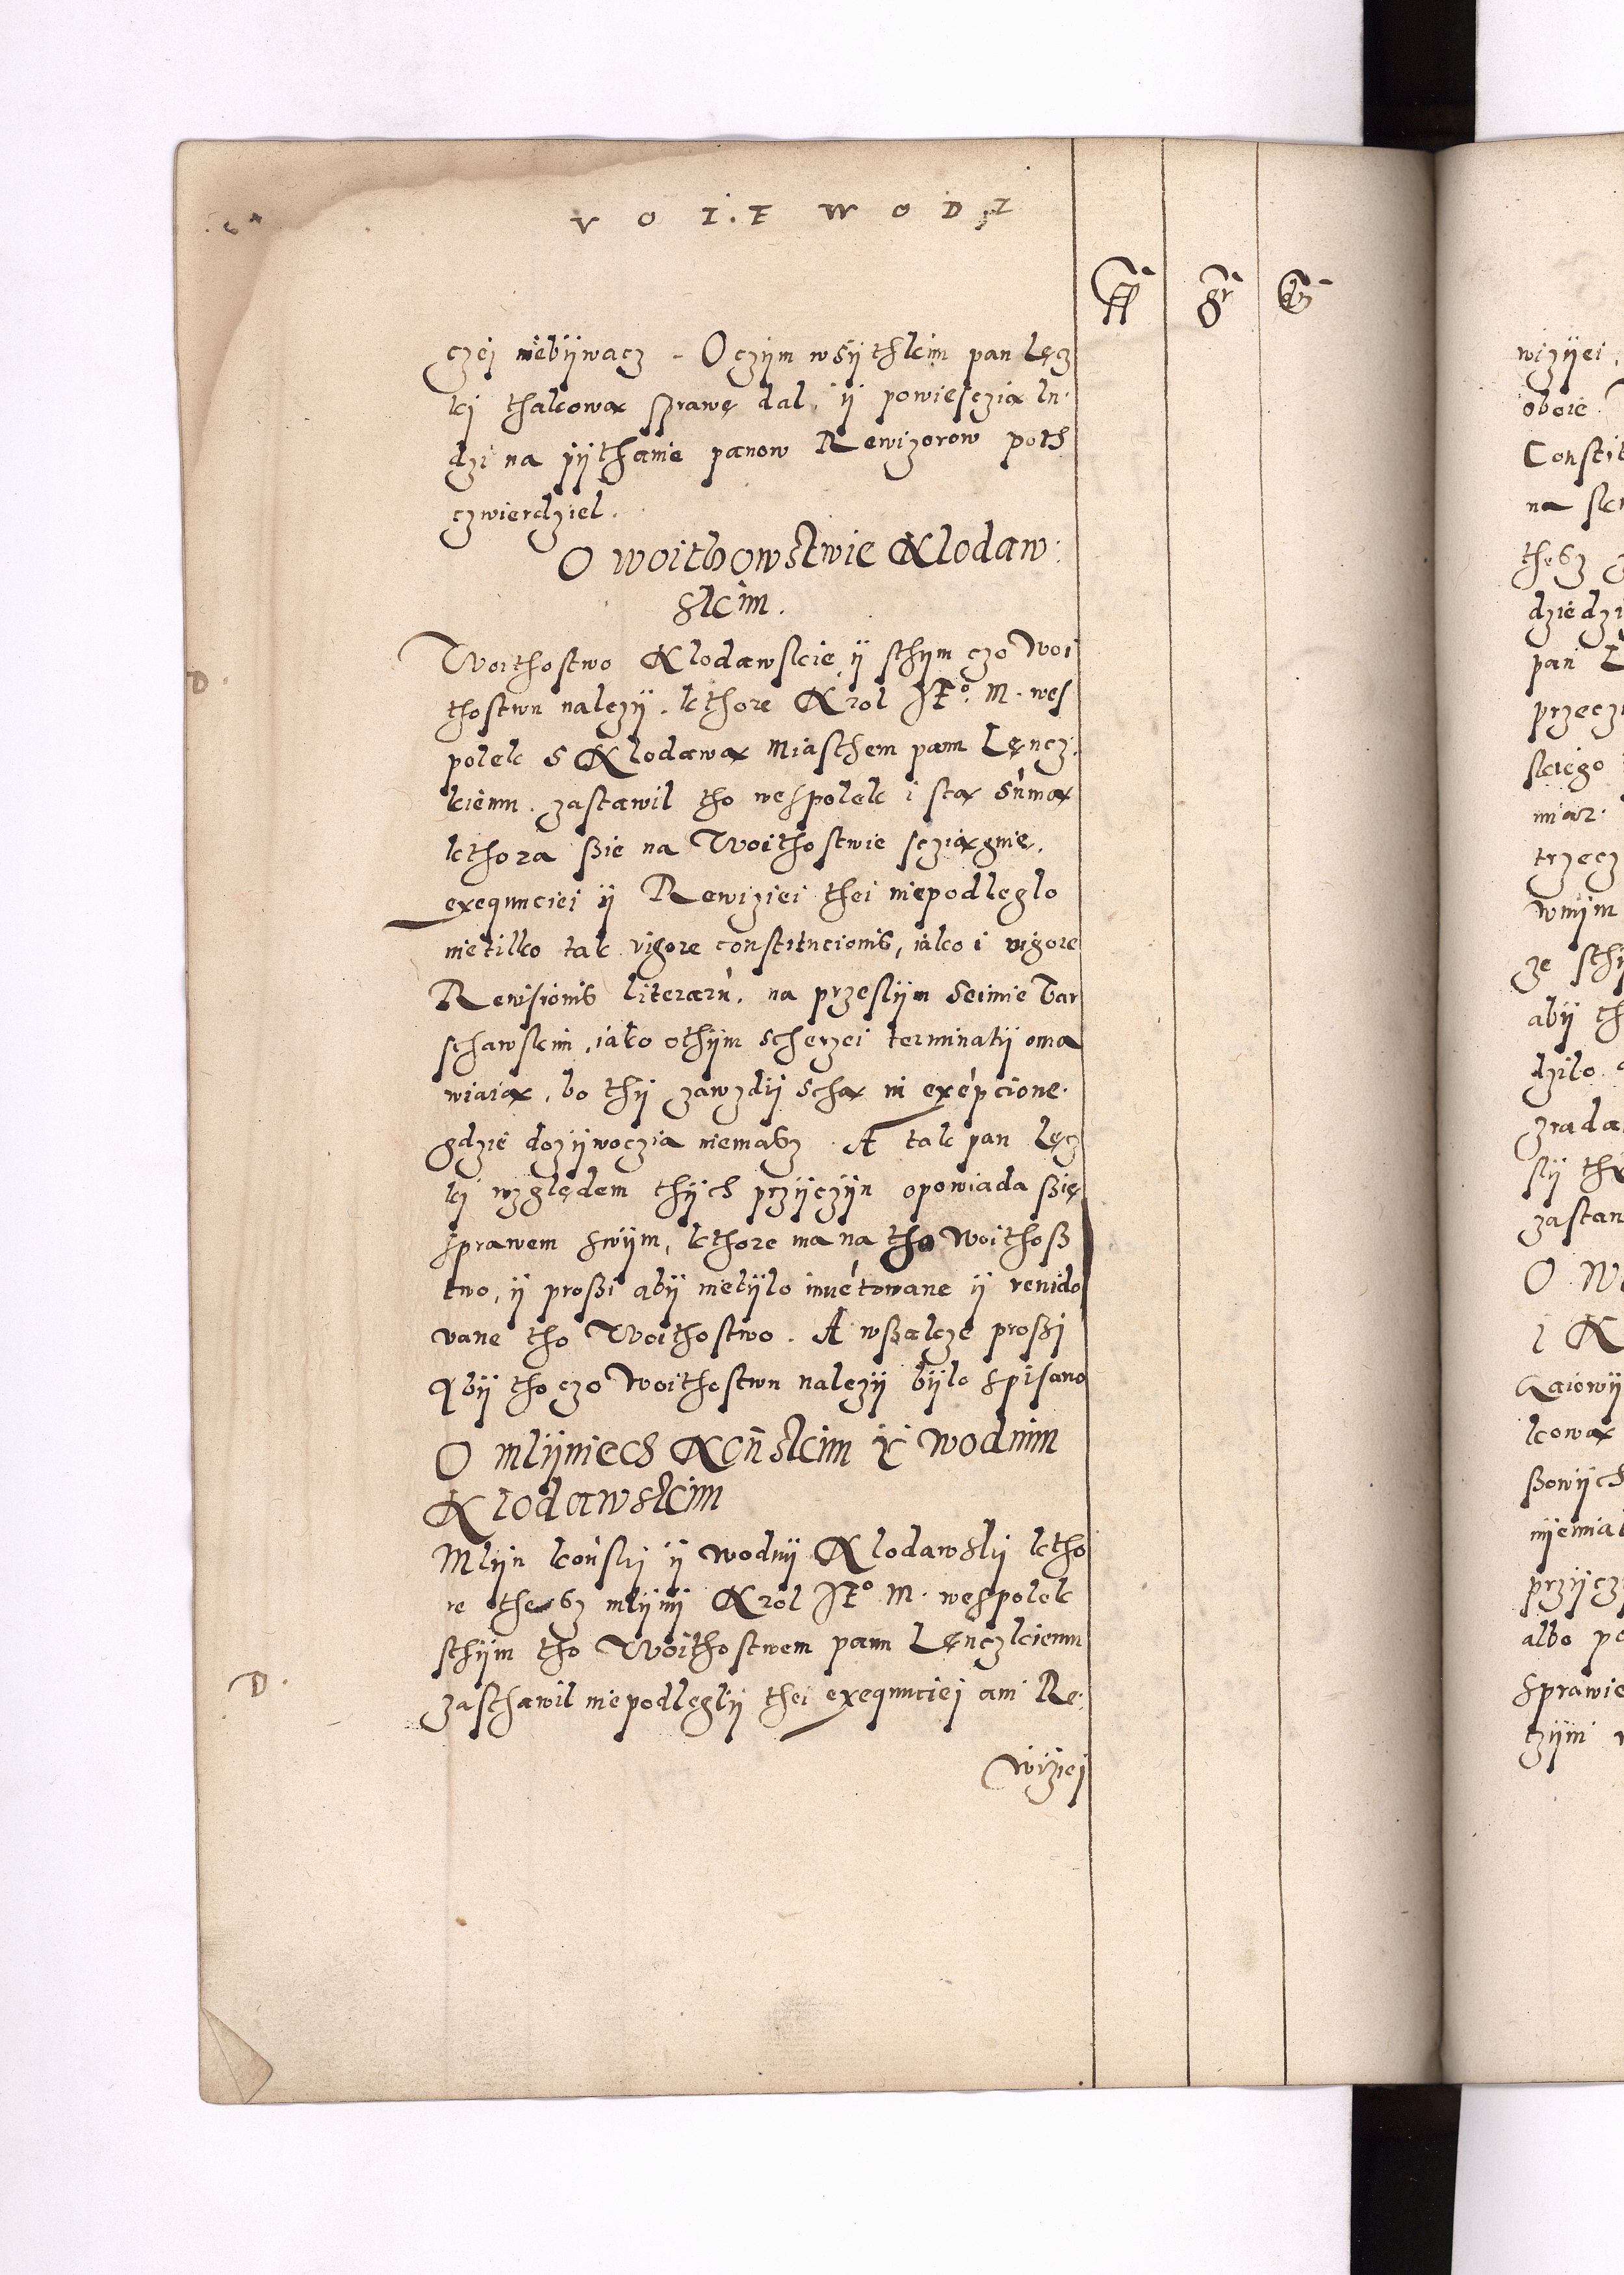 V O I E W O D Z
ff gr dz
czej niebijwacz - O czijm wsijthkim pan Lęcz
kj thakowᶏ sprawę dal, ij powiesczią lu
dzi na pijthanie panow Rewizorow poth
czwierdziel.
O woithowstwie Klodaw
skim.
D.
Woithostwo Klodawskie ij sthijm czo Woi
thostwu nalezij. kthore Krol JE° M. wes
polek s Klodawą miasthem panu Lęncz
kiemu. zastawil tho wespolek i stą sumą
kthora ßie na Woithostwie scziągnie,
exequuciei ij Rewiziei thei niepodleglo
nietilko tak vigore constitucionis, iako i vigore
Rewisionis literarū, na przeslijm Seimie Var
schawskim, iako othijm scherzei terminatij oma
wiaią, bo thij zawzdij schą in exēpcione.
gdzie dozijwoczia niemasz. A tak pan Lęcz
kj względem thijch przijczijn opowiada ßię
sprawem swijm, kthore ma na tho Woithoß
two, ij proßi abij niebijlo inuētowane ij reuido
vane tho Woithostwo. A wßakze proßi
abij tho czo Woithostwu nalezij bijlo spisano
O mlijniech Końskim ij wodnim
Klodawskim
Mlijn końskj ij wodnij Klodawskij ktho
re thesz mlijnij Krol JE° M. wespolek
sthijm tho Woithostwem panu Lęnczkiemu
D.
zasthawil niepodleglij thei exequuciej ani Re
wiziej
wizijei,
oboie
Constit
na sk
thesz
dziedzi
pan L
przecz
skiego
miar.
trzecz
wnijm
ze sthij
abij th
dzilo
zrada
slij th
zastan
O W
i K
kową
ßowijch
nijemia
przijcz
albo po
sprawie
czijm